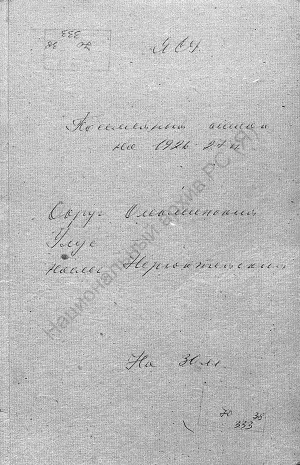 ЯСУ
Посемейный список
на 1926-27 г
Округ Олекминский
Улус
Наслег Нерюктейский
На 30 л
70 35
333
Национальный архив РС(Я)